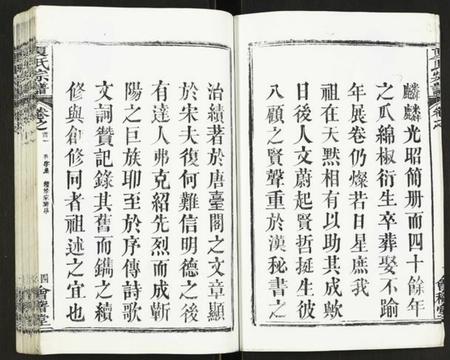 麟麟光昭簡册而四十餘年
之瓜綿椒衍生卒葬娶不踰
年展卷仍燦若日星庶我
祖在天默相有以助其成歟
日後人文蔚起賢哲挺生彼
八顧之賢聲重於漢秘書之
治績著於唐臺閣之文章顯
於宋夫復何難信明德之後
有達人弗克紹先烈而成蘄
陽之巨族耶至於序傳詩歌
文詞贊記錄其舊而鐫之續
修與創修同者祖述之宜也
夏氏宗譜
卷之首
四
會
堂